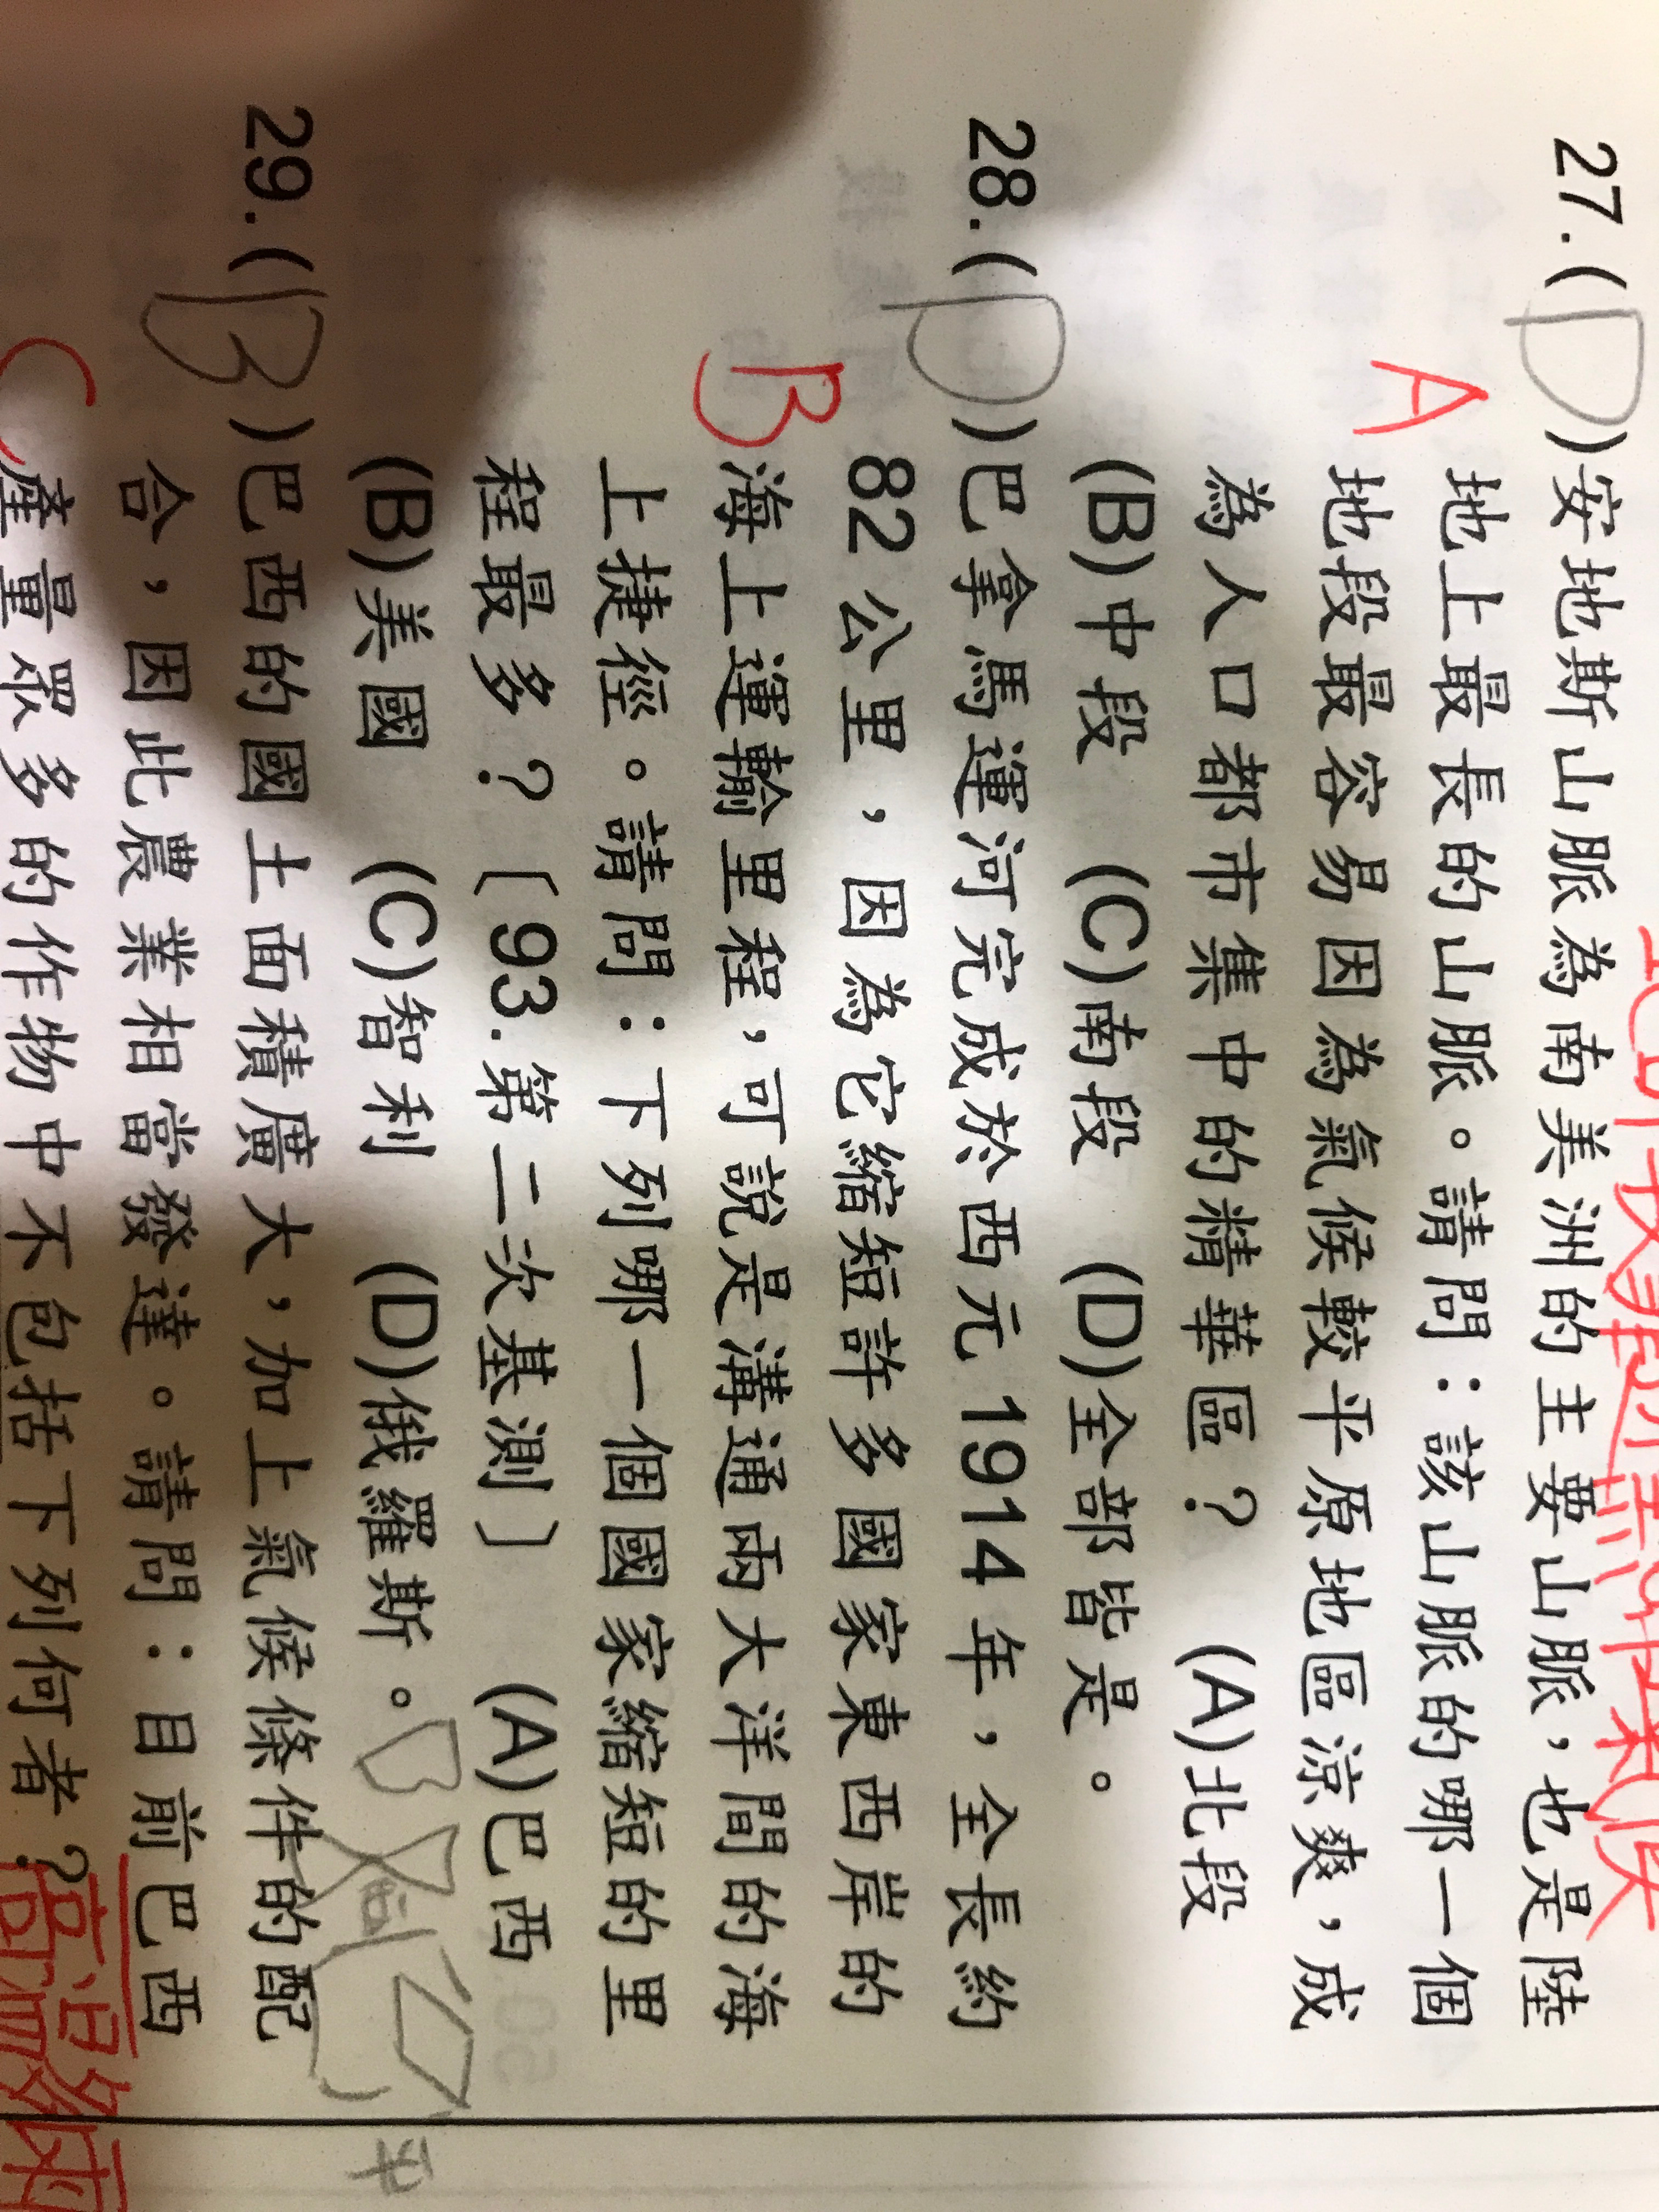 27.(D)安地斯山脈為南美洲的主要山脈，也是陸
A
地上最長的山脈。請問：該山脈的哪一個
地段最容易因為氣候較平原地區涼爽，成
為人口都市集中的精華區？ (A)北段
(B)中段 (C)南段 (D)全部皆是。
28.(D)巴拿馬運河完成於西元 1914 年，全長約
82 公里，因為它縮短許多國家東西岸的
B
海上運輸里程，可說是溝通兩大洋間的海
上捷徑。請問：下列哪一個國家縮短的里
程最多？〔93.第二次基測〕 (A)巴西
(B)美國 (C)智利 (D)俄羅斯。
29.(B)巴西的國土面積廣大，加上氣候條件的配
合，因此農業相當發達。請問：目前巴西
C
產量眾多的作物中不包括下列何者？